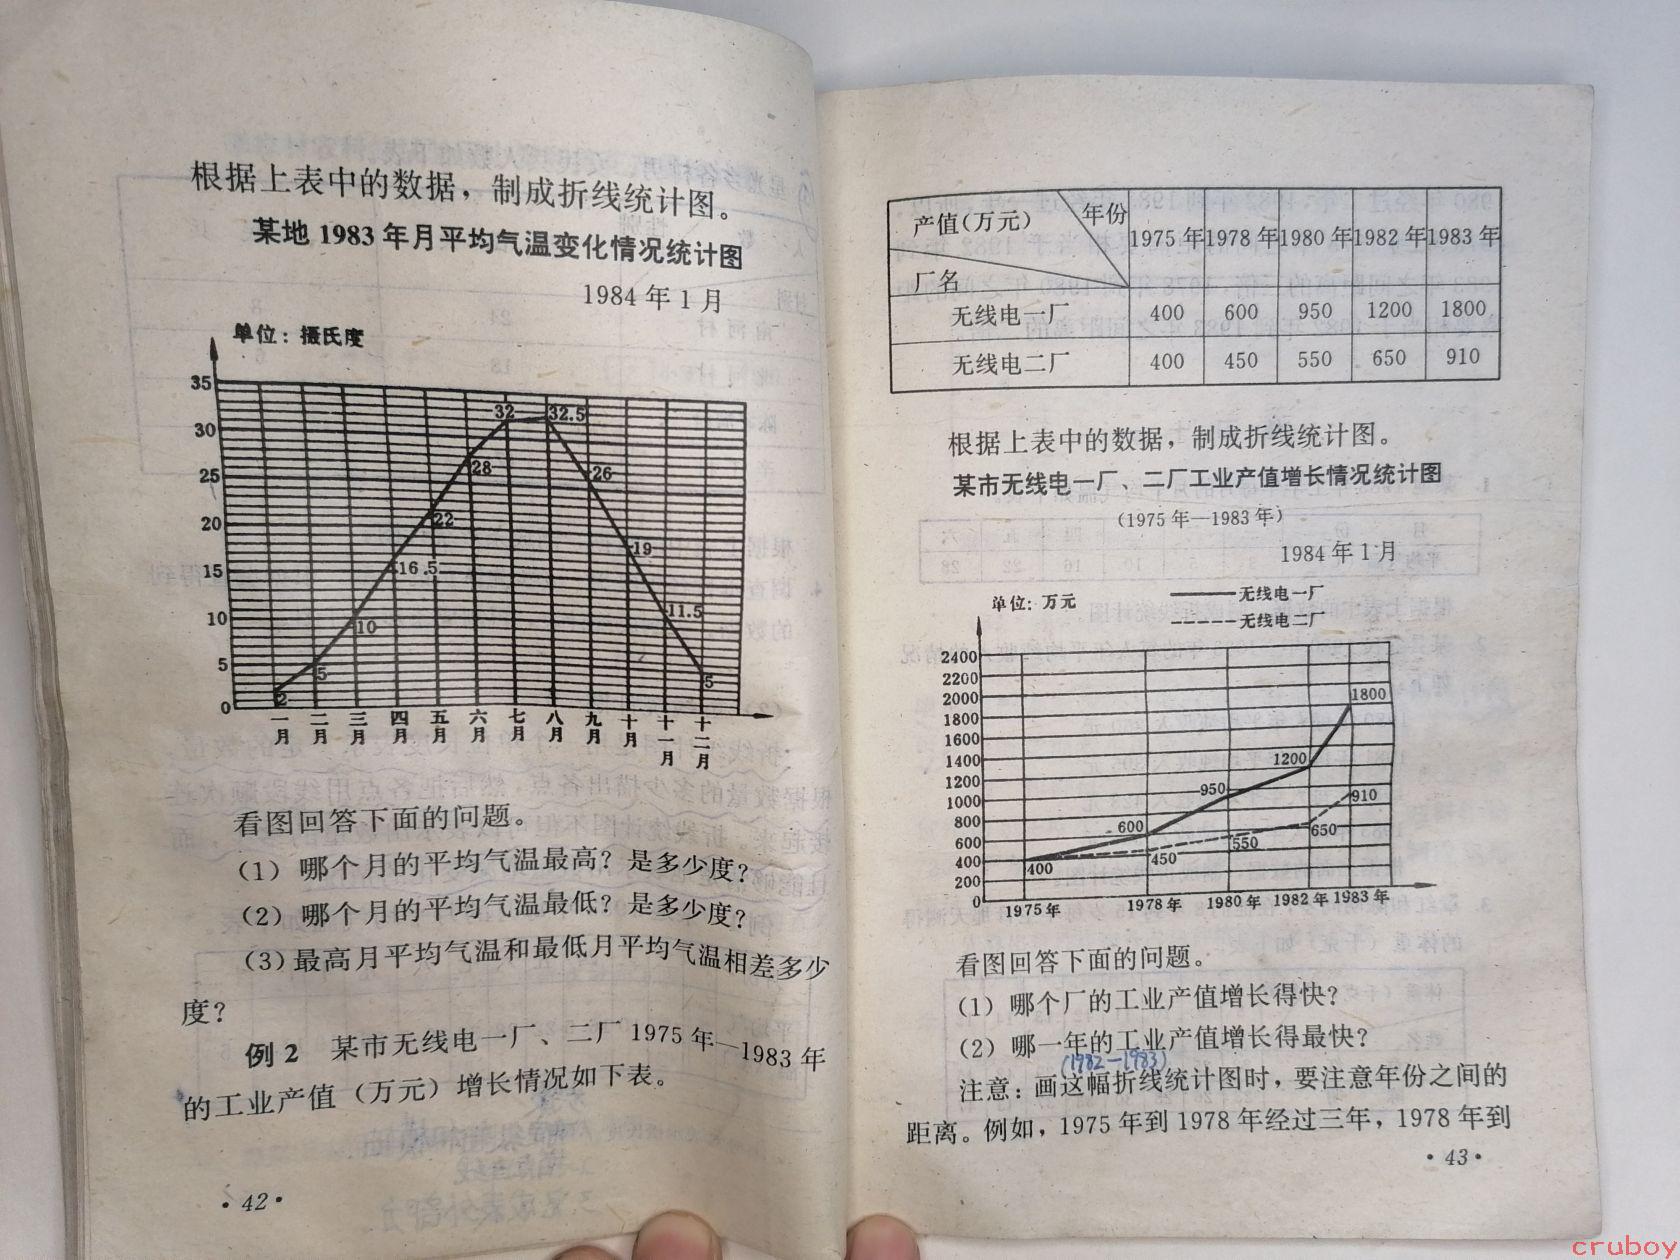 根据上表中的数据，制成折线统计图。
某地1983年月平均气温变化情况统计图
1984年1月
单位：摄氏度
35
30
25
20
15
10
5
0
2
5
10
16.5
22
28
32
32.5
26
19
11.5
5
一月 二月 三月 四月 五月 六月 七月 八月 九月 十月 十一月 十二月
看图回答下面的问题。
(1) 哪个月的平均气温最高？是多少度？
(2) 哪个月的平均气温最低？是多少度？
(3) 最高月平均气温和最低月平均气温相差多少
度？
例2 某市无线电一厂、二厂1975年—1983年
的工业产值（万元）增长情况如下表。
·42·
产值(万元) 年份 1975年 1978年 1980年 1982年 1983年
厂名
无线电一厂 400 600 950 1200 1800
无线电二厂 400 450 550 650 910
根据上表中的数据，制成折线统计图。
某市无线电一厂、二厂工业产值增长情况统计图
(1975年—1983年)
1984年1月
单位：万元
无线电一厂
无线电二厂
2400
2200
2000
1800
1600
1400
1200
1000
800
600
400
200
0
400
600
950
1200
1800
450
550
650
910
1975年 1978年 1980年 1982年 1983年
看图回答下面的问题。
(1) 哪个厂的工业产值增长得快？
(2) 哪一年的工业产值增长得最快？
(1982—1983)
注意：画这幅折线统计图时，要注意年份之间的
距离。例如，1975年到1978年经过三年，1978年到
·43·
cruboy